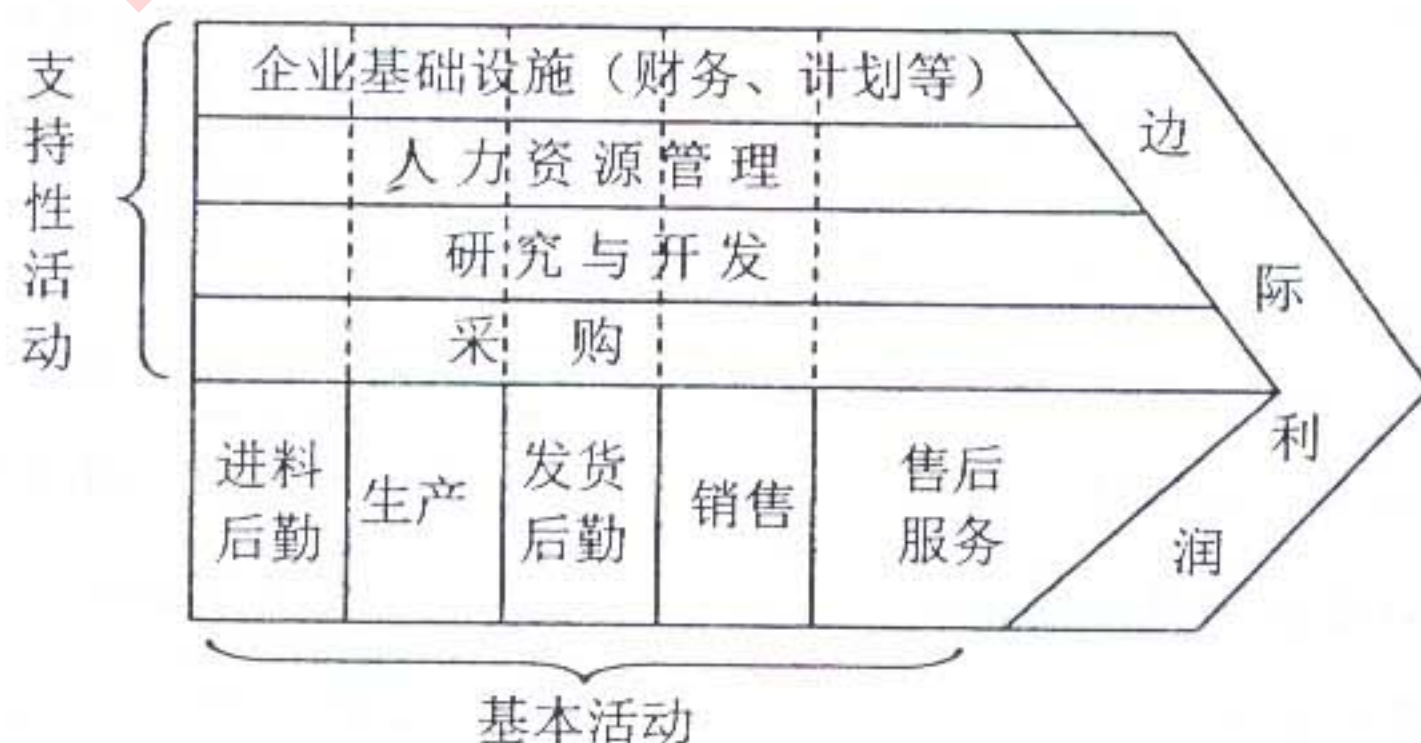 支持性活动
企业基础设施（财务、计划等）
人力资源管理
研究与开发
采购
进料
后勤
生产
发货
后勤
销售
售后
服务
边际利润
基本活动